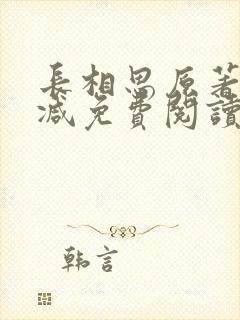 長相思原著
減免費閱讀
韩言